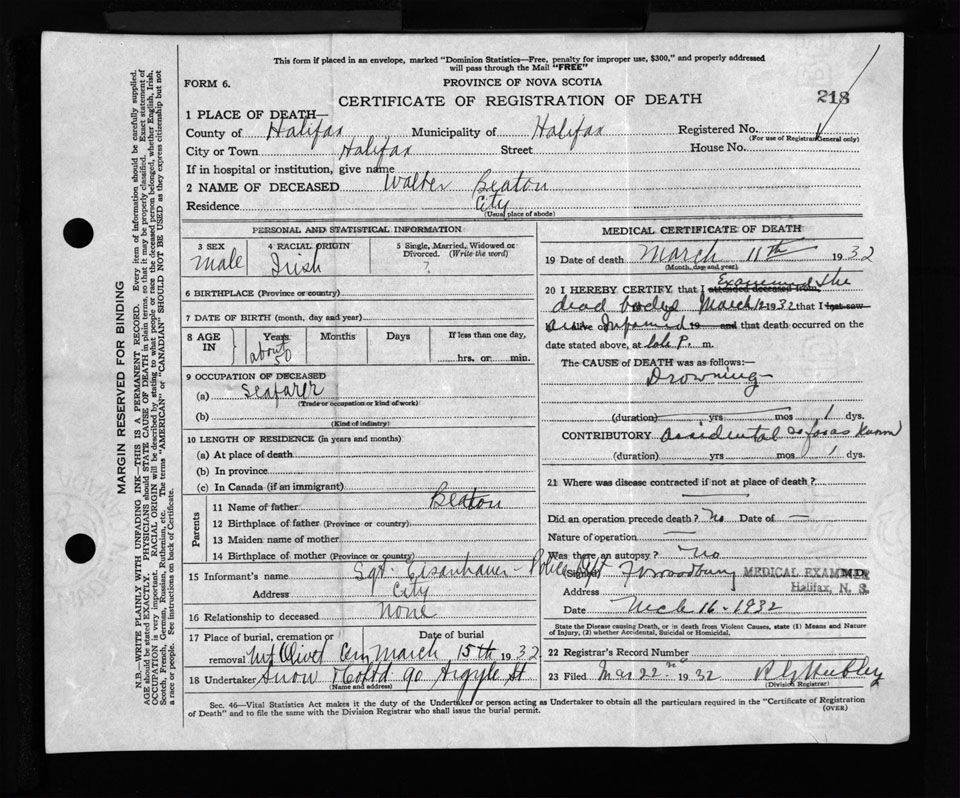 This form if placed in an envelope, marked "Dominion Statistics—Free, penalty for improper use, $300," and properly addressed
will pass through the Mail "FREE"
FORM 6.
PROVINCE OF NOVA SCOTIA
CERTIFICATE OF REGISTRATION OF DEATH
218
1 PLACE OF DEATH—
County of Halifax Municipality of Halifax Registered No.
(For use of Registrar General only)
City or Town Halifax Street House No.
If in hospital or institution, give name
2 NAME OF DECEASED Walter Beaton
Residence City
(Usual place of abode)
PERSONAL AND STATISTICAL INFORMATION
3 SEX 4 RACIAL ORIGIN 5 Single, Married, Widowed or
Divorced. (Write the word)
Male Irish ?
6 BIRTHPLACE (Province or country)
7 DATE OF BIRTH (month, day and year)
8 AGE IN Years Months Days If less than one day,
about 50 hrs. or min.
9 OCCUPATION OF DECEASED
(a) Seafarer
(Trade or occupation or kind of work)
(b)
(Kind of industry)
10 LENGTH OF RESIDENCE (in years and months)
(a) At place of death
(b) In province
(c) In Canada (if an immigrant)
Parents
11 Name of father Beaton
12 Birthplace of father (Province or country)
13 Maiden name of mother
14 Birthplace of mother (Province or country)
15 Informant's name Sgt. Eisenhauer - Police Dpt
Address City
16 Relationship to deceased None
17 Place of burial, cremation or removal Date of burial
Mt Olivet Cem March 15th 1932
18 Undertaker Snow & Co Ltd 90 Argyle St.
(Name and address)
MEDICAL CERTIFICATE OF DEATH
19 Date of death March 11th 1932
(Month, day and year)
20 I HEREBY CERTIFY that I attended deceased from, Examined the
dead body March 1932 that I last saw
alive on Informed 19 and that death occurred on the
date stated above, at P. m.
The CAUSE of DEATH was as follows:—
Drowning
(duration) yrs mos 1 dys.
CONTRIBUTORY Accidental so far as known
(duration) yrs mos 1 dys.
21 Where was disease contracted if not at place of death?
Did an operation precede death? No Date of —
Nature of operation —
Was there an autopsy? No
(Signed) F Woodbury MEDICAL EXAMINER
Address Halifax, N. S.
Date Mch 16-1932
State the Disease causing Death, or in death from Violent Causes, state (1) Means and Nature
of Injury, (2) whether Accidental, Suicidal or Homicidal.
22 Registrar's Record Number
23 Filed Mar 22nd 1932
(Division Registrar)
Sec. 46—Vital Statistics Act makes it the duty of the Undertaker or person acting as Undertaker to obtain all the particulars required in the "Certificate of Registration
of Death" and to file the same with the Division Registrar who shall issue the burial permit. (OVER)
MARGIN RESERVED FOR BINDING
N.B.—WRITE PLAINLY WITH UNFADING INK—THIS IS A PERMANENT RECORD. Every item of information should be carefully supplied.
AGE should be stated EXACTLY. PHYSICIANS should STATE CAUSE OF DEATH in plain terms, so that it may be properly classified. Exact statement of
OCCUPATION is very important. RACIAL ORIGIN will be described by stating to what people or race the deceased person belonged, whether English, Irish,
Scotch, French, German, Russian, Ruthenian, etc. The terms "AMERICAN" or "CANADIAN" SHOULD NOT BE USED as they express citizenship but not
a race or people. See instructions on back of Certificate.